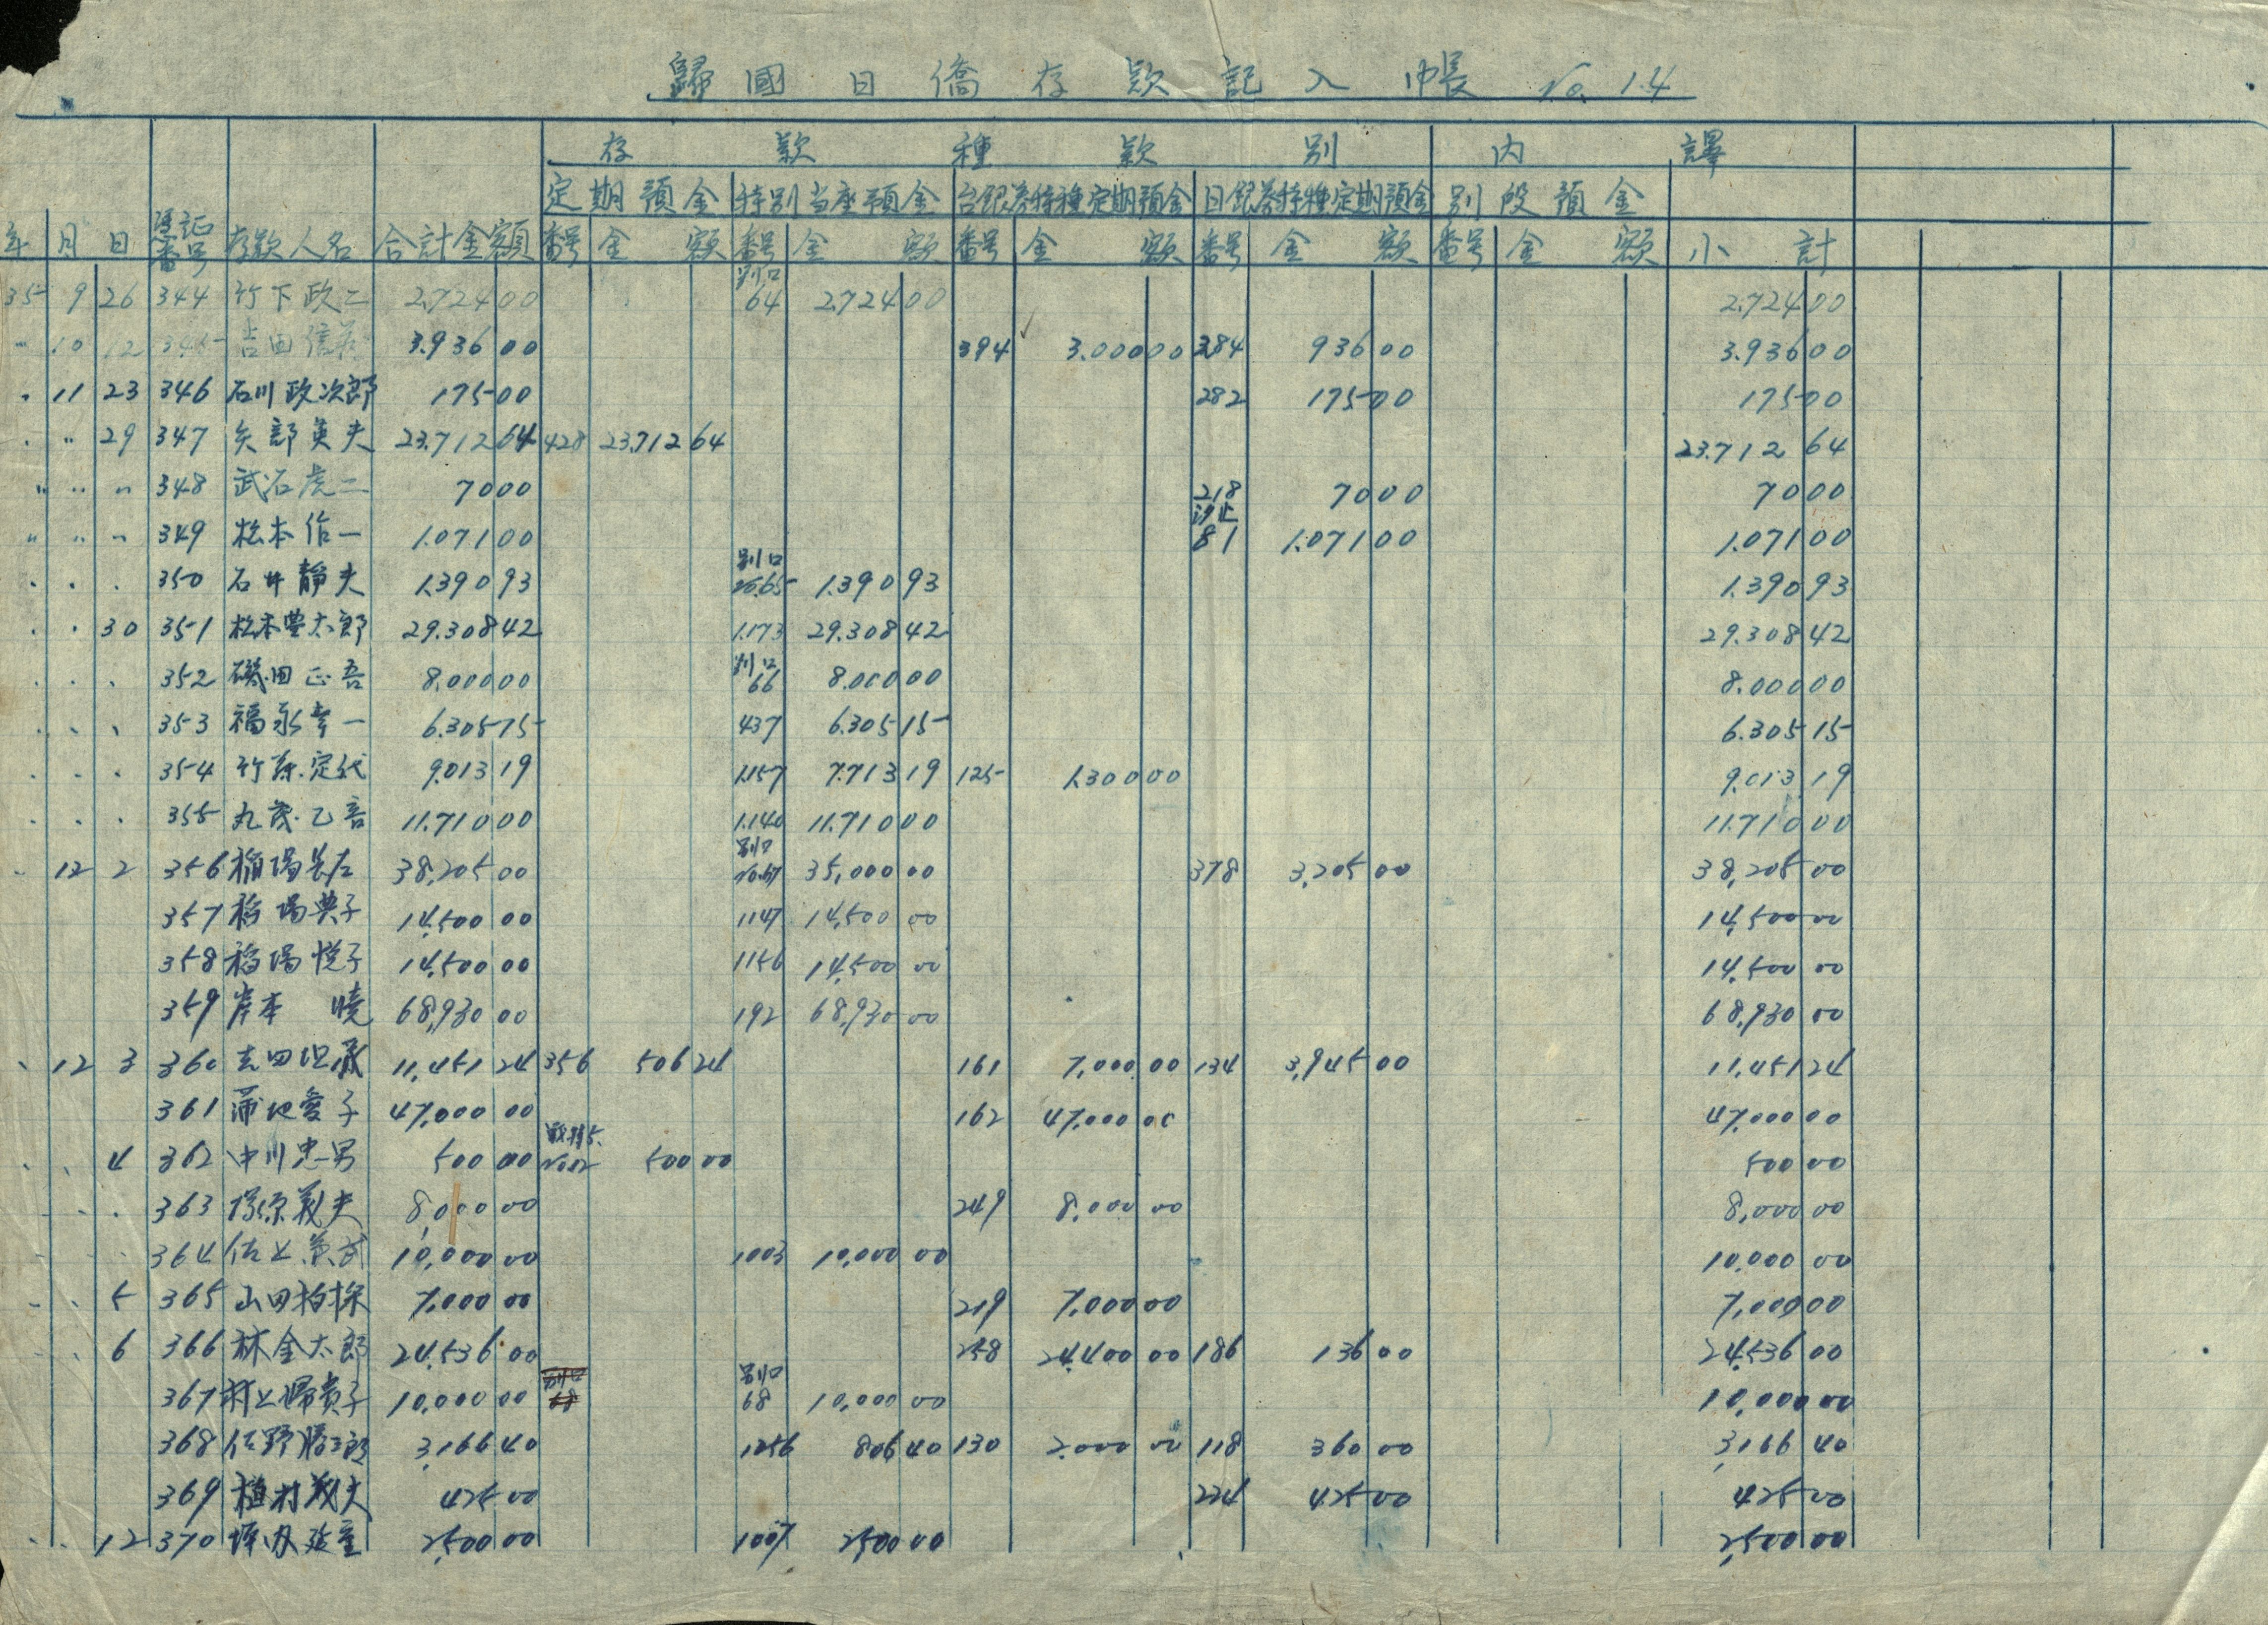 歸國日僑存款記入帳 No. 14
存款種款別內譯
定期預金 特別当座預金 台銀券特種定期預金 日銀券特種定期預金 別段預金
年 月 日 憑証番号 存款人名 合計金額 番号 金額 番号 金額 番号 金額 番号 金額 番号 金額 小計
35 9 26 344 竹下政二 2.724 00 別口 64 2.724 00 2.724 00
" 10 12 345 吉田信 3.936 00 394 3.000 00 384 936 00 3.936 00
" 11 23 346 石川政次郎 175 00 282 175 00 175 00
" " 29 347 矢部英夫 23.712 64 428 23.712 64 23.712 64
" " " 348 武石虎二 70 00 218 70 00 70 00
" " " 349 松本作一 1.071 00 汐止 81 1.071 00 1.071 00
" " " 350 石井靜夫 1.390 93 別口 No.65 1.390 93 1.390 93
" " 30 351 松本豊太郎 29.308 42 1.173 29.308 42 29.308 42
" " " 352 磯田正吾 8.000 00 別口 66 8.000 00 8.000 00
" " " 353 福永幸一 6.305 75 437 6.305 15 6.305 15
" " " 354 竹 定代 9.013 19 1.157 7.713 19 125 1.300 00 9.013 19
" " " 355 丸茂乙吾 11.710 00 1.140 11.710 00 11.710 00
" 12 2 356 稲場 38,205 00 別口 No.67 35,000 00 378 3,205 00 38,205 00
357 稲場典子 14,500 00 1147 14,500 00 14,500 00
358 稲場悦子 14,500 00 1156 14,500 00 14,500 00
359 岸本 曉 68,930 00 192 68,930 00 68,930 00
" 12 3 360 吉田 藏 11,451 24 356 506 24 161 7,000 00 134 3,945 00 11,451 24
361 蒲池愛子 47,000 00 162 47,000 00 47,000 00
" " 4 362 中川忠男 500 00 No.12 500 00 500 00
" " 363 塚原義夫 8,000 00 249 8,000 00 8,000 00
" " 364 佐 武 10,000 00 1003 10,000 00 10,000 00
" " 5 365 山田 7,000 00 219 7,000 00 7,000 00
" " 6 366 林金太郎 24,536 00 258 24,400 00 186 136 00 24,536 00
367 村上帰貴子 10,000 00 別口 68 別口 68 10,000 00 10,000 00
368 佐野勝三郎 3,166 40 1256 806 40 130 2,000 00 118 360 00 3,166 40
369 植村義夫 425 00 234 425 00 425 00
" " 12 370 坪 2,500 00 1007 2,500 00 2,500 00